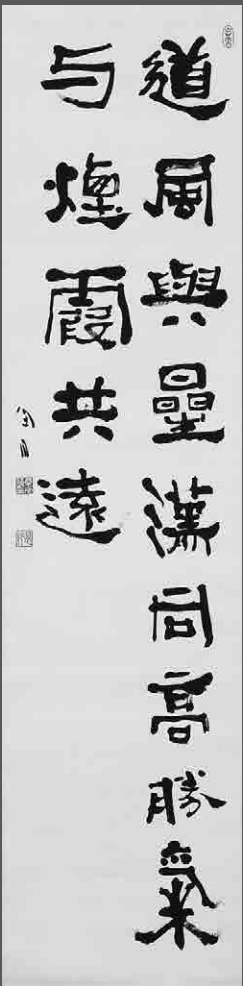 道風與星漢同高勝氣
与煙霞共遠